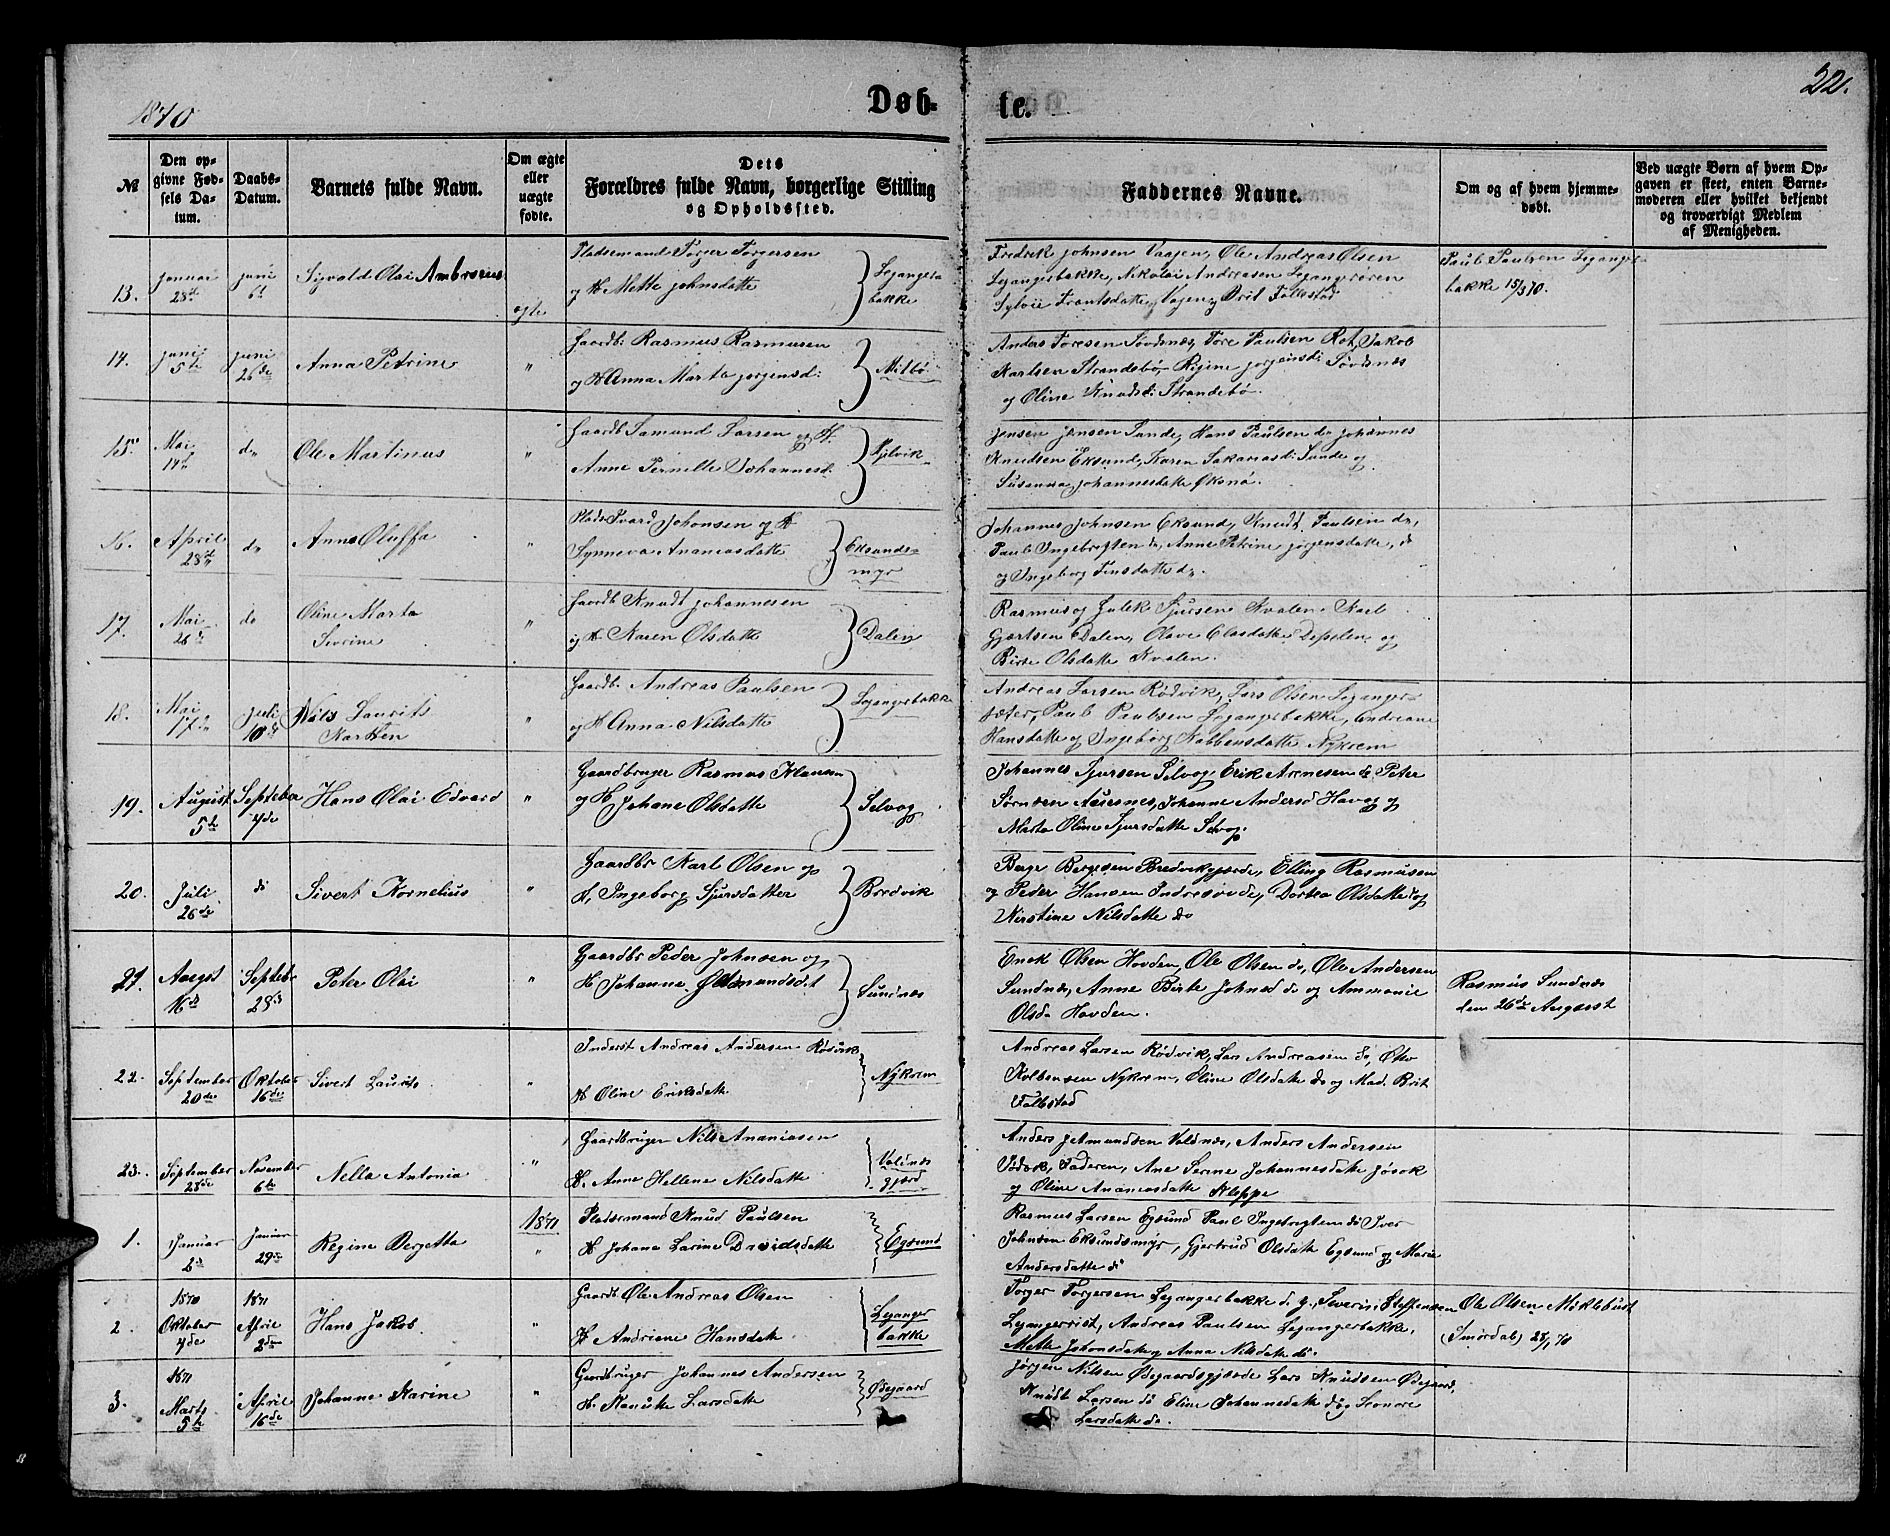 1870
Døb-
te.
22.
№
Den op-
givne Fød-
sels Da-
tum.
Daabs-
Datum.
Barnets fulde Navn.
Om ægte
eller
uægte
fødte.
Dets
Forældres fulde Navn, borgerlige Stilling
og Opholdssted.
Faddernes Navne.
Om og af hvem hjemme-
døbt.
Ved uægte Børn af hvem Op-
gaven er skeet, enten Barne-
moderen eller hvilket bekjendt
og troværdigt Medlem
af Menigheden.
13.
Januar
28de
Juni
6te
Sigvald Olai Ambrosius
ægte
Pladsemand Torger Torgersen
og H Mette Johnsdatte
Leganger
bakke
Fredrik Johnsen Vaagen, Ole Andreas Olsen
Legangerbakke, Nikolai Andreasen Legangerøren
Sylvie Frantsdatte Vagen, Brit Folkestad
Paul Paulsen Leganger
bakke 15/3 70.
14.
Juni
5te
Juni
26de
Anna Petrine
"
Gaardb. Rasmus Rasmusen
og H Anna Marta Jørgensd:
Mitbø
Anders Toresen Sovdsnes, Tore Paulsen Rot, Jakob
Karlsen Strandebø, Regine Jorgensd: Søvdsnes
og Oline Knudsd: Strandebø.
15.
Mai
14de
do
Ole Martinus
"
Gaardb Samund Larsen og H.
Anne Pernille Johannesd.
Kjilvik
Jensen Jensen Sande, Hans Paulsen do Johannes
Knudsen Eksund, Karen Sakariasd: Sande og
Susanna Johannesdatte Øksnø.
16.
April
28de
do
Anne Oluffa
"
Plads Ivard Johonsen og H
Synneva Ananiasdatte
Eksunds-
myr
Johannes Johnsen Eksund, Knudt Paulsen do,
Paul Ingebrigtsen do, Anne Petrine Jørgensdatte, do
og Ingeborg Finsdatte do.
17.
Mai
26de
do
Oline Marta
Sevrine
"
Gaardb Knudt Johannesen
og H Karen Olsdatte
Dalen
Rasmus og Falek Sjursen Kvalen Karl
Gjertsen Dalen, Olave Olasdatte Depelen og
Birte Olsdatte Kvalen.
18.
Mai
17de
Juli
10de
Nils Laurits
Karsten
"
Gaardb. Andreas Paulsen
og H Anna Nilsdatte
Legangerbakke
Andreas Larsen Rødvik, Lars Olsen Leganger-
sæter, Paul Paulsen Legangerbakke, Andreane
Hansdatte og Ingeborg Kolbensdatte Nykrem
19.
August
5te
Septeber
4de
Hans Olai Edvard
"
Gaardbruger Rasmus Klausen
og H. Johane Olsdatte
Selvog
Johannes Sjursen Selvog Erik Arnesen do Peter
Sørnsen Aursnes, Johanne Andersd Havog og
Marta Oline Sjursdatte Selvog.
20.
Juli
26de
do
Sivert Kornelius
"
Gaardbr Karl Olsen og
H, Ingeborg Sjursdatter
Bredvik
Berge Bergesen Bredvikgjærde, Elling Rasmusen
og Peder Hansen Indresøvde, Dortea Olsdatte do og
Kirstine Nilsdatte do
21.
Augst
16de
Septebr
25de
Peter Olai
"
Gaardbr Peder Johnsen og
H. Johanne Østmundsdt
Sundnæs
Enok Olsen Hovden, Ole Olsen do, Ole Andersen
Sundnæs, Anne Birte Johnsd do og Ammonie
Olsda Hovden.
Rasmus Sundnæs
den 26de August
22.
September
20de
Oktober
16de
Sivert Laurits
"
Inderst Andreas Andersen Rødvik
H Oline Eriksdatte
Nykrem
Andreas Larsen Rødvik, Lars Andreasen do, Otto
Kolbensen Nykrem, Oline Olsdatte do og Mad. Brit
Folkstad
23.
September
28de
November
6te
Nella Antonia
"
Gaardbruger Nils Ananiasen
H. Anne Hellene Nilsdatte
Voldnæs
gjærd
Anders Amundsen Voldnæs, Anders Andersen
Jøsok, Faderen, Ane Serine Johannesdatte Jøsok
og Oline Ananiasdatte Kleppe
1871
1.
Januar
2de
Januar
29de
Regine Bergetta
"
Pladsemand Knud Paulsen
H Johane Larine Davidsdatte
Egsund
Rasmus Larsen Egsund Paul Ingebrigtsen do Iver
Johnsen Eksundsmyr, Gjertrud Olsdatte Egsund og Marie
Andersdatte do
2.
1870
Oktober
4de
1871
April
2den
Hans Jakob
"
Gaardb Ole Andreas Olsen
H Andriane Hansdatte
Leganger
bakke
Torger Torgersen Legangerbakke do g. Severin Steffensen
Legangerrist, Andreas Paulsen Legangerbakke,
Mette Johonsdatte og Anna Nilsdatte do.
Ole Olsen Miklebust
(Smørdal) 25/, 70
3.
1871
Marts
5te
April
16de
Johanne Karine
"
Gaardbruger Johannes Andersen
H. Larsdatte
Ødegaard
Jørgen Nilsen Ødegaardsgjærde Lars Knudsen Ødegaard,
Knudt Larsen do Eline Johannedatte do og Leonore
Larsdatte do.